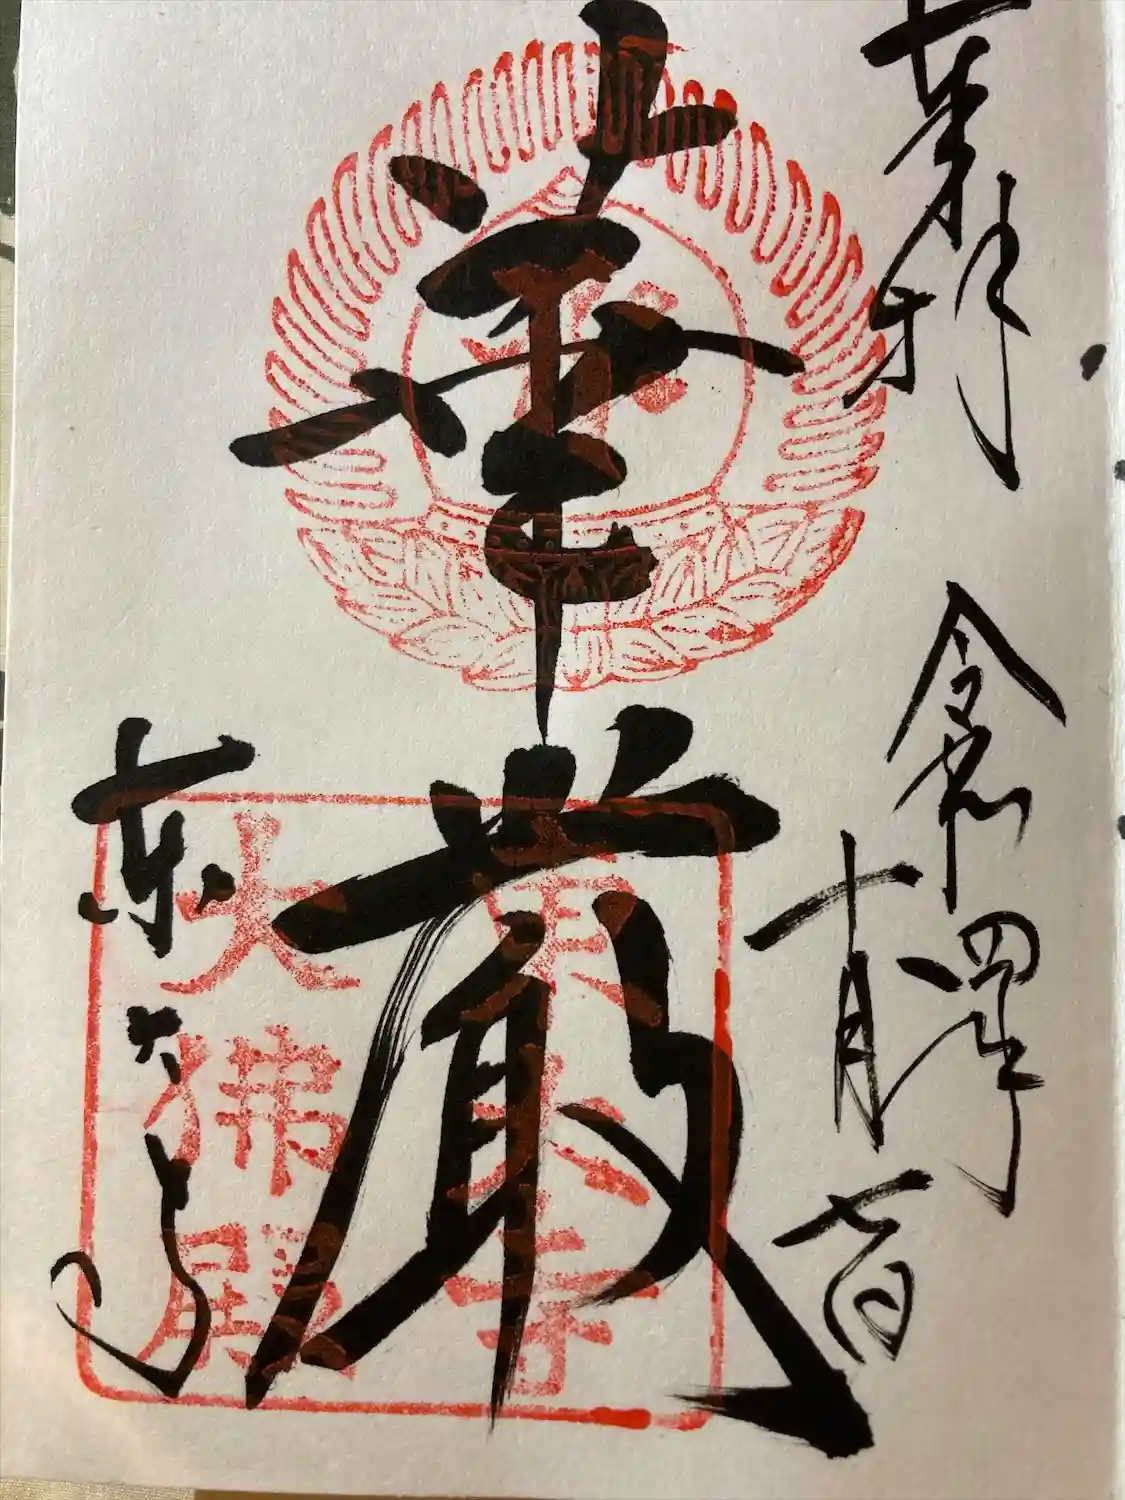 奉拝
令和四年
十月七日
華嚴
東大寺
東大寺
大佛殿